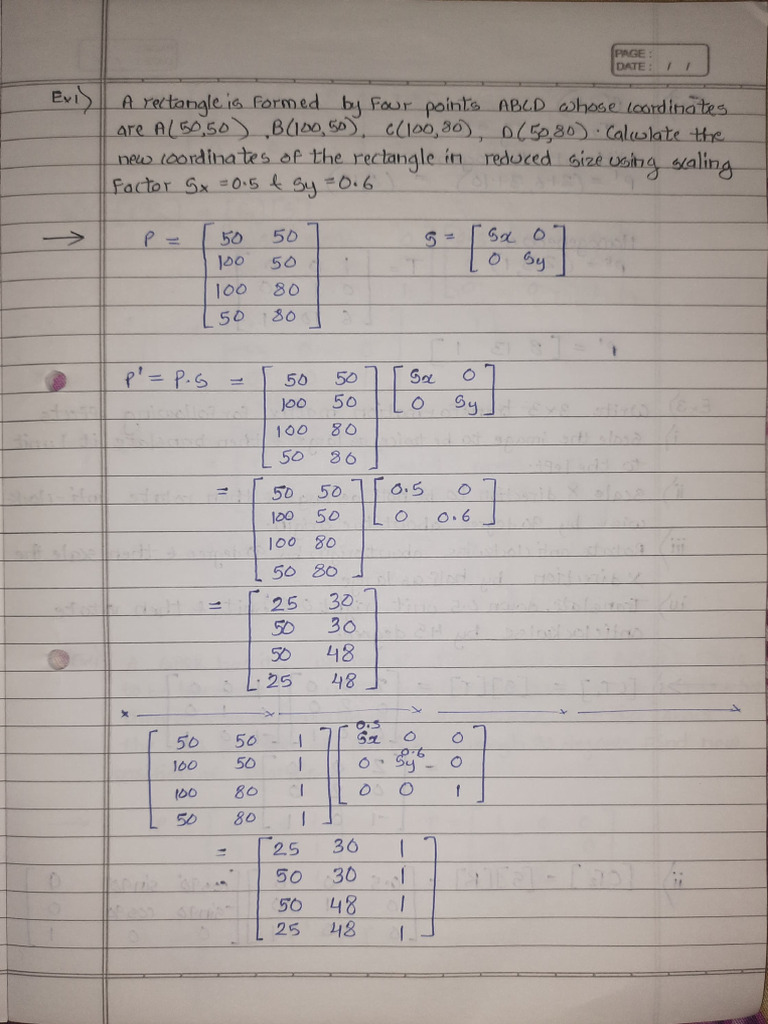 PAGE :
DATE : / /
Ex1) A rectangle is formed by four points ABCD whose coordinates
are A(50,50), B(100,50), C(100,80), D(50,80). Calculate the
new coordinates of the rectangle in reduced size using scaling
factor Sx = 0.5 & Sy = 0.6
→ P = [ 50 50 S = [ Sx 0
100 50 0 Sy ]
100 80
50 80 ]
P' = P.S = [ 50 50 ] [ Sx 0
100 50 0 Sy ]
100 80
50 80 ]
= [ 50 50 ] [ 0.5 0
100 50 0 0.6 ]
100 80
50 80 ]
= [ 25 30
50 30
50 48
25 48 ]
[ 50 50 1 ] [ 0.5 Sx 0 0
100 50 1 0 Sy 0.6 0
100 80 1 0 0 1 ]
50 80 1 ]
= [ 25 30 1
50 30 1
50 48 1
25 48 1 ]